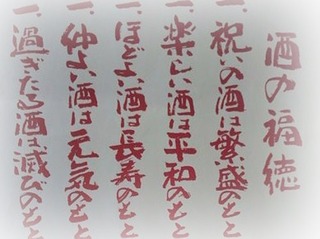 酒の福徳
一、祝いの酒は繁盛のもと
一、楽しい酒は平和のもと
一、ほどよい酒は長寿のもと
一、仲よい酒は元気のもと
一、過ぎたる酒は滅びのもと